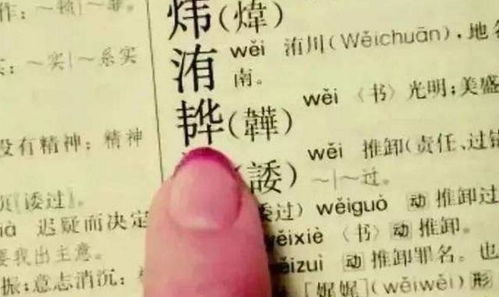 实：～实｜～系实
没有精神；精神
迟疑而决定
要我出主意。
振：意志消沉
(煒)
洧 wěi 洧川(Wěichuān)，地名
南。
(韡) wěi 〈书〉光明；美盛
(諉) wěi 推卸(责任、过错
～｜～过。
诿过) wěiguò 动 推卸过
wěixiè 〈书〉动 推卸。
wěizuì 动 推卸罪名。也
［娓娓］(wěiwěi) 形